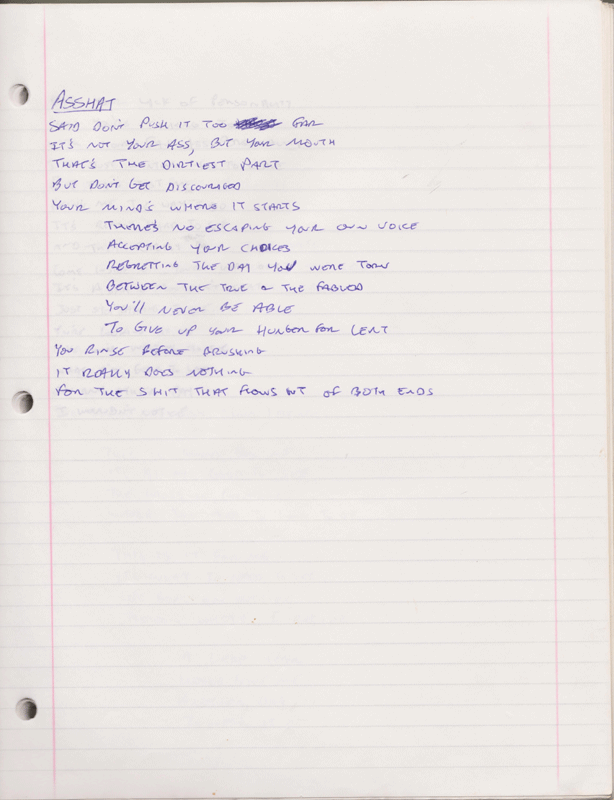 ASSHAT
SAID DON'T PUSH IT TOO FAR
IT'S NOT YOUR ASS, BUT YOUR MOUTH
THAT'S THE DIRTIEST PART
BUT DON'T GET DISCOURAGED
YOUR MIND'S WHERE IT STARTS
THERE'S NO ESCAPING YOUR OWN VOICE
ACCEPTING YOUR CHOICES
REGRETTING THE DAY YOU WERE TORN
BETWEEN THE TRUE OR THE FABLED
YOU'LL NEVER BE ABLE
TO GIVE UP YOUR HUNGER FOR LENT
YOU RINSE BEFORE BRUSHING
IT REALLY DOES NOTHING
FOR THE SHIT THAT FLOWS OUT OF BOTH ENDS